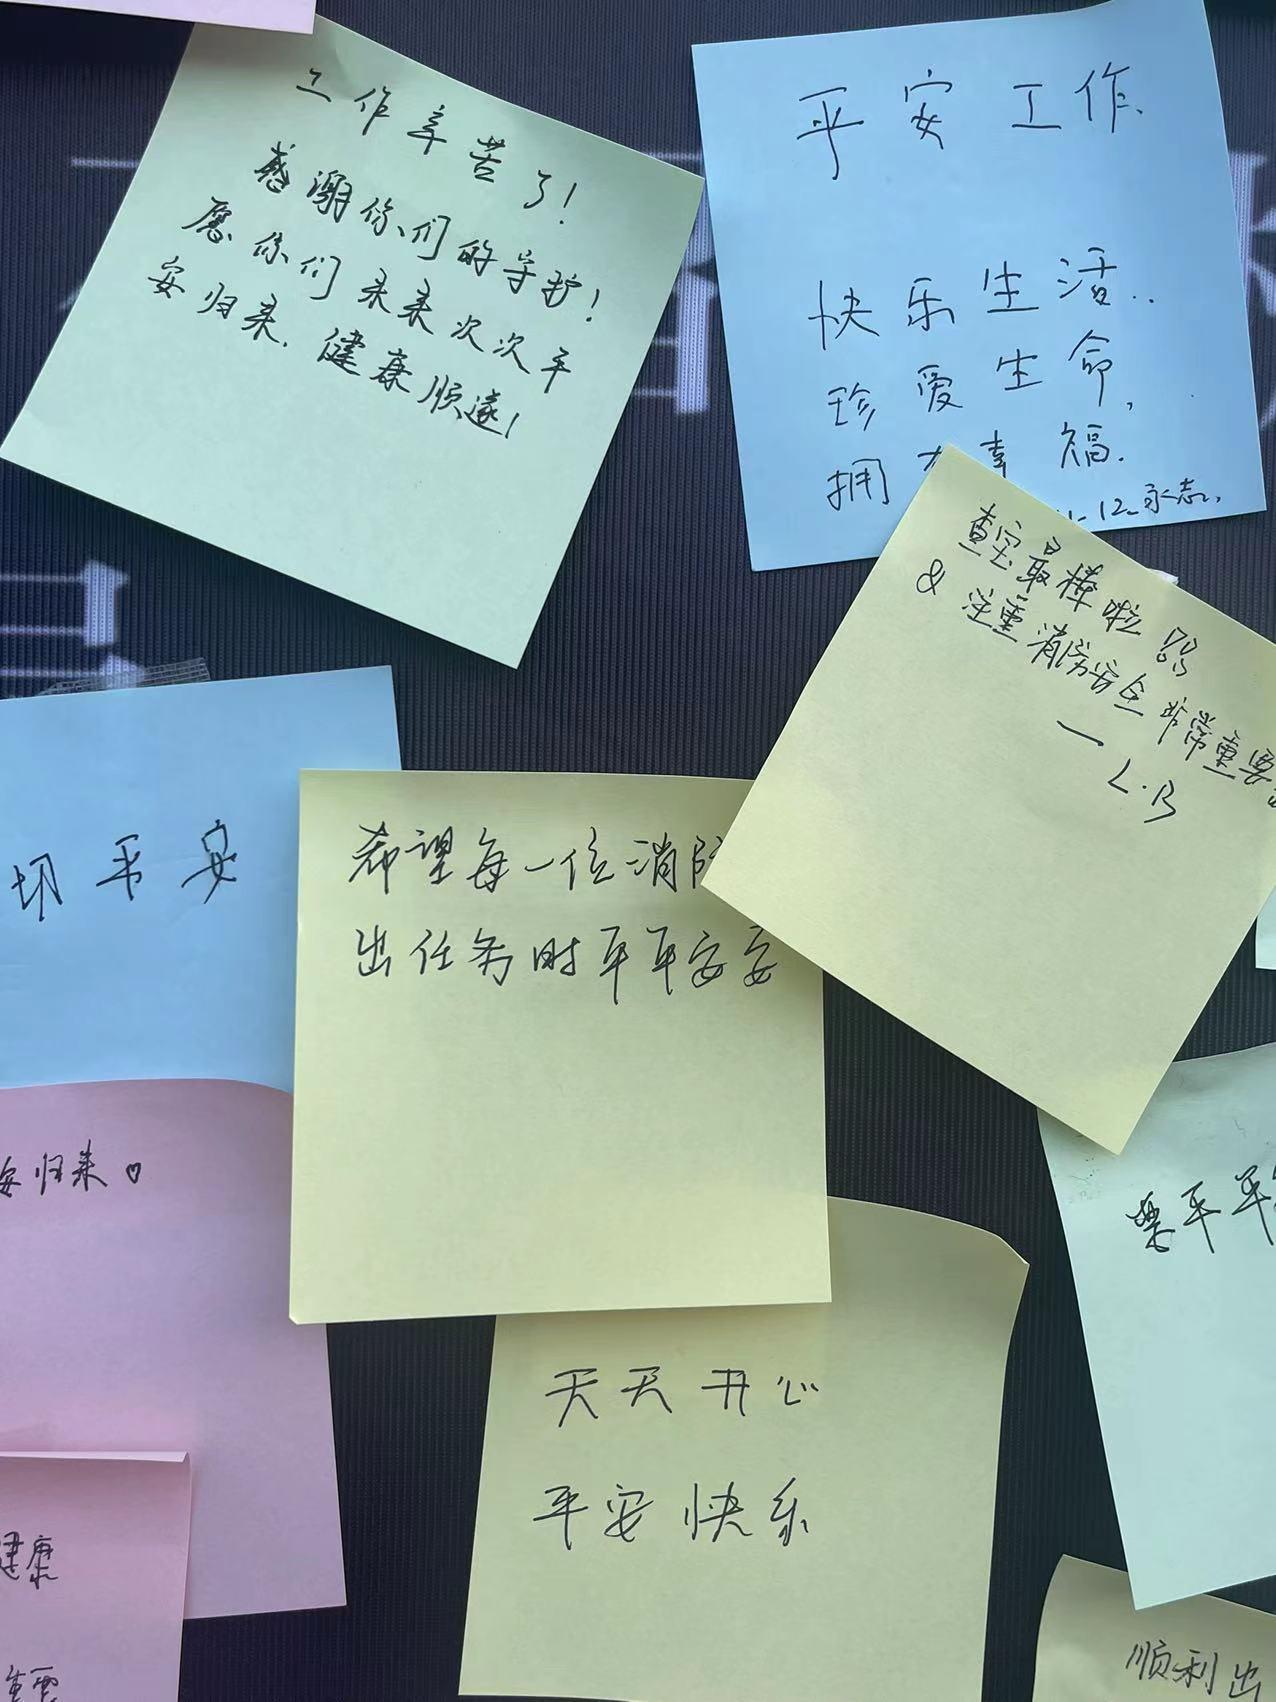 工作辛苦了！
感谢你们的守护！
愿你们未来次次平
安归来，健康顺遂！
平安工作.
快乐生活..
珍爱生命，
拥有幸福.
12.永志.
查宝最棒啦!!
& 注重消防安全非常重要
— L.B
切平安
希望每一位消防
出任务时平平安安
安归来♡
要平平
天天开心
平安快乐
健康
顺利出